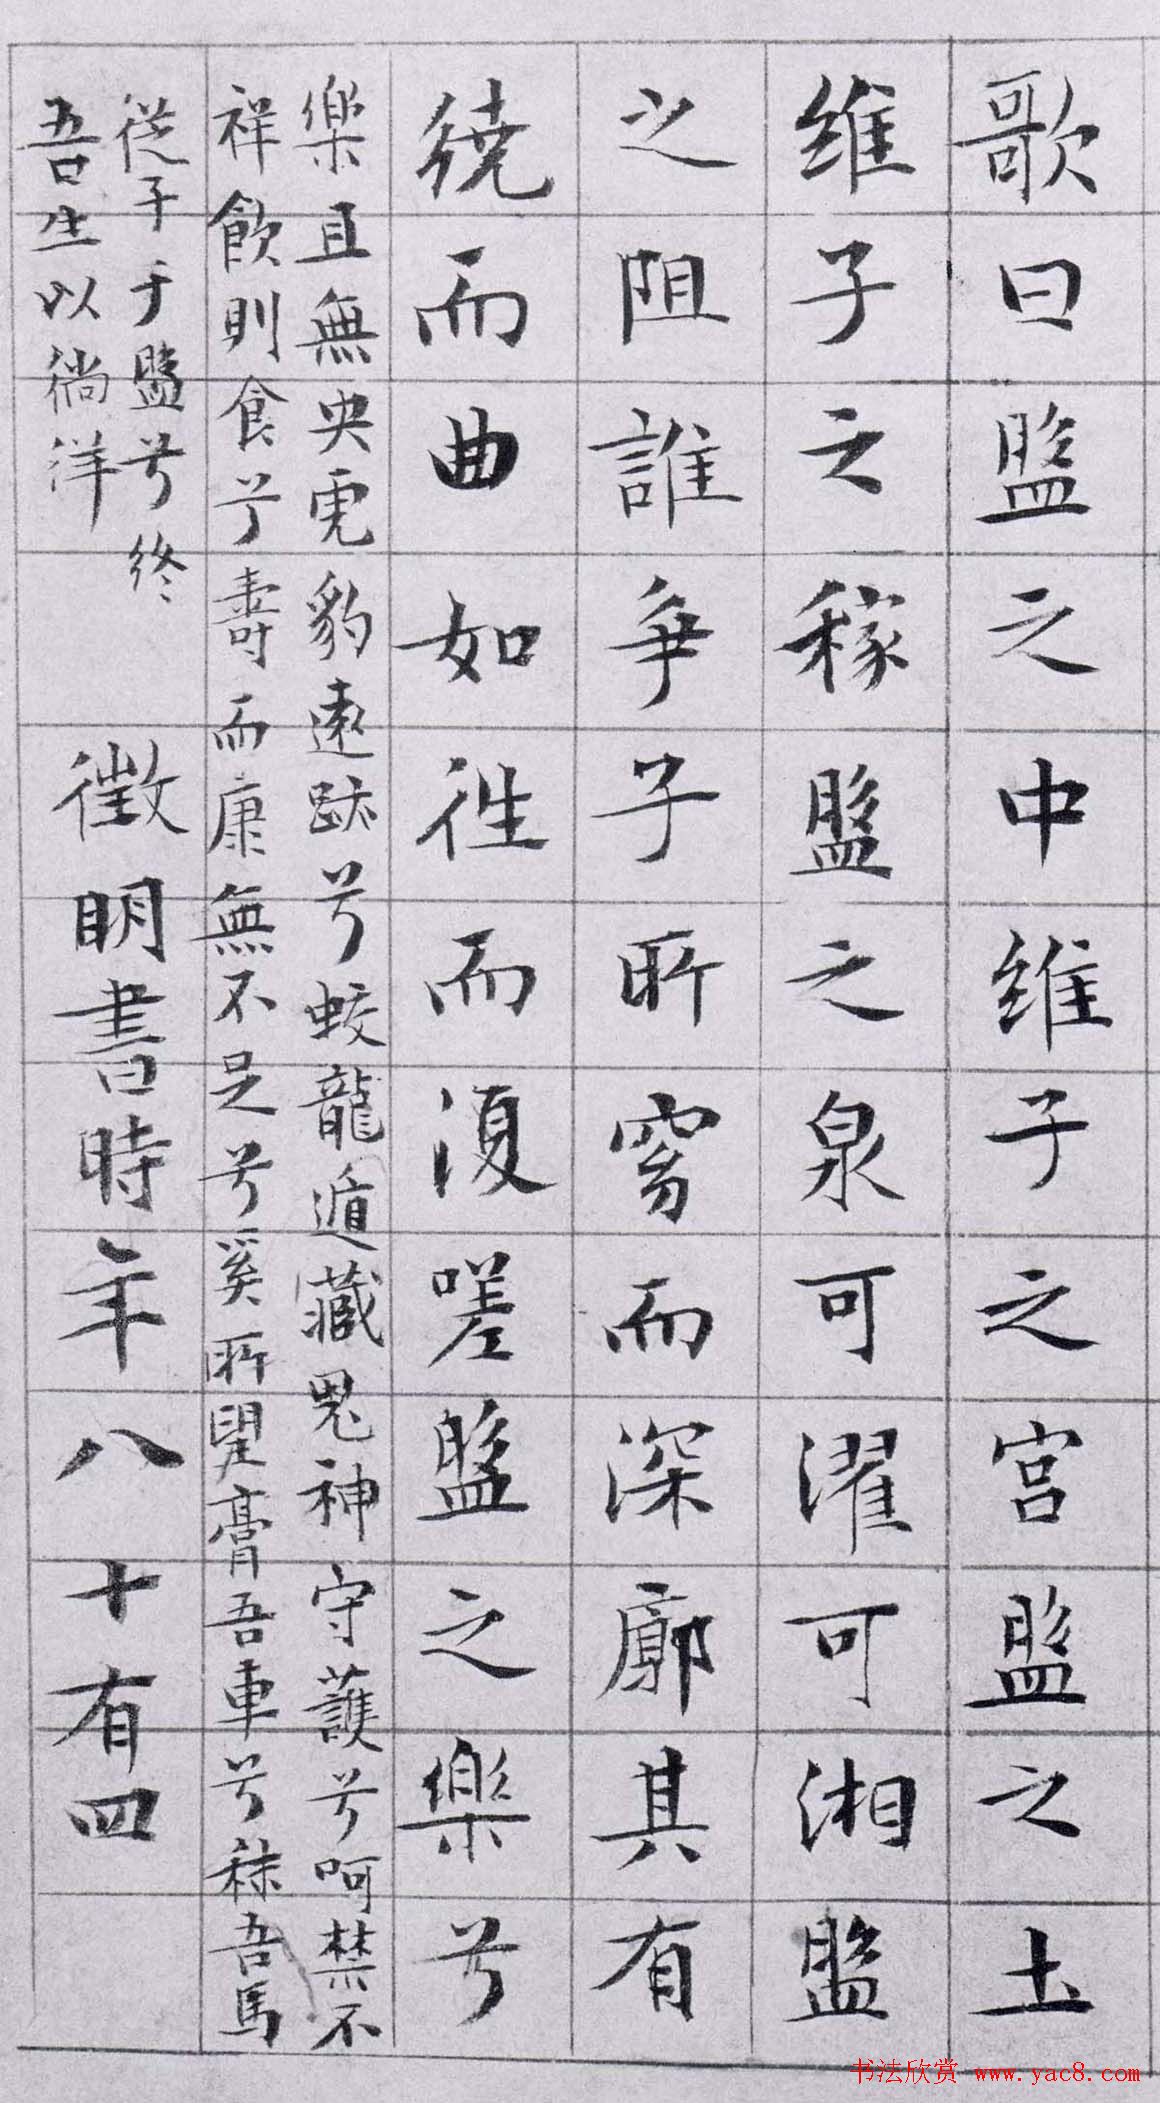 歌曰盤之中維子之宫盤之土
維子之稼盤之泉可濯可湘盤
之阻誰爭子所窈而深廓其有
繞而曲如往而復嗟盤之樂兮
樂且無央虎豹遠跡兮蛟龍遁藏鬼神守護兮呵禁不
祥飲則食兮壽而康無不足兮奚所望膏吾車兮秣吾馬
從子于盤兮終
吾生以徜洋
徵明書時年八十有四
书法欣赏 www.yac8.com